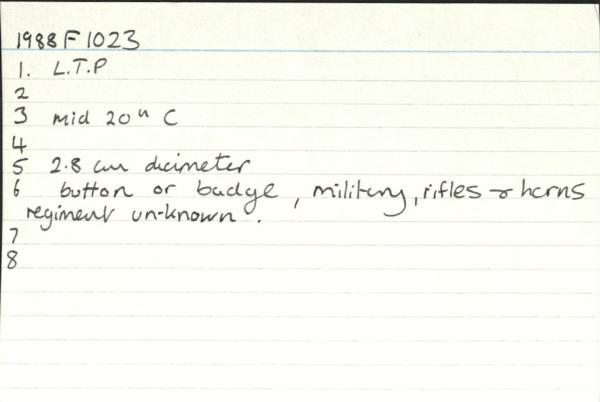 1988 F 1023
1. L.T.P
2
3 mid 20th C
4
5 2.8 cm diameter
6 button or badge, military, rifles & horns
regiment un-known.
7
8